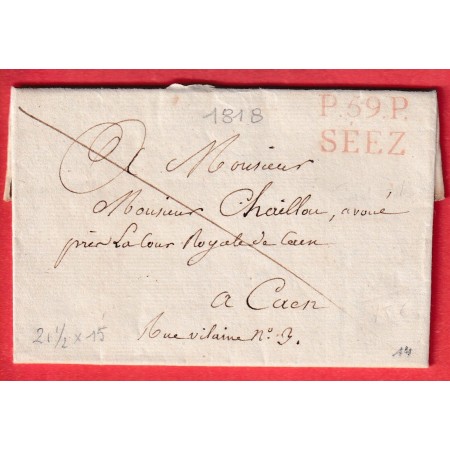 1818
P.59.P.
SÉEZ
A Monsieur
Monsieur Chaillou, avoué
près La Cour Royale de Caen
a Caen
Rue vilaine N.° 3.
21 1/2 x 15